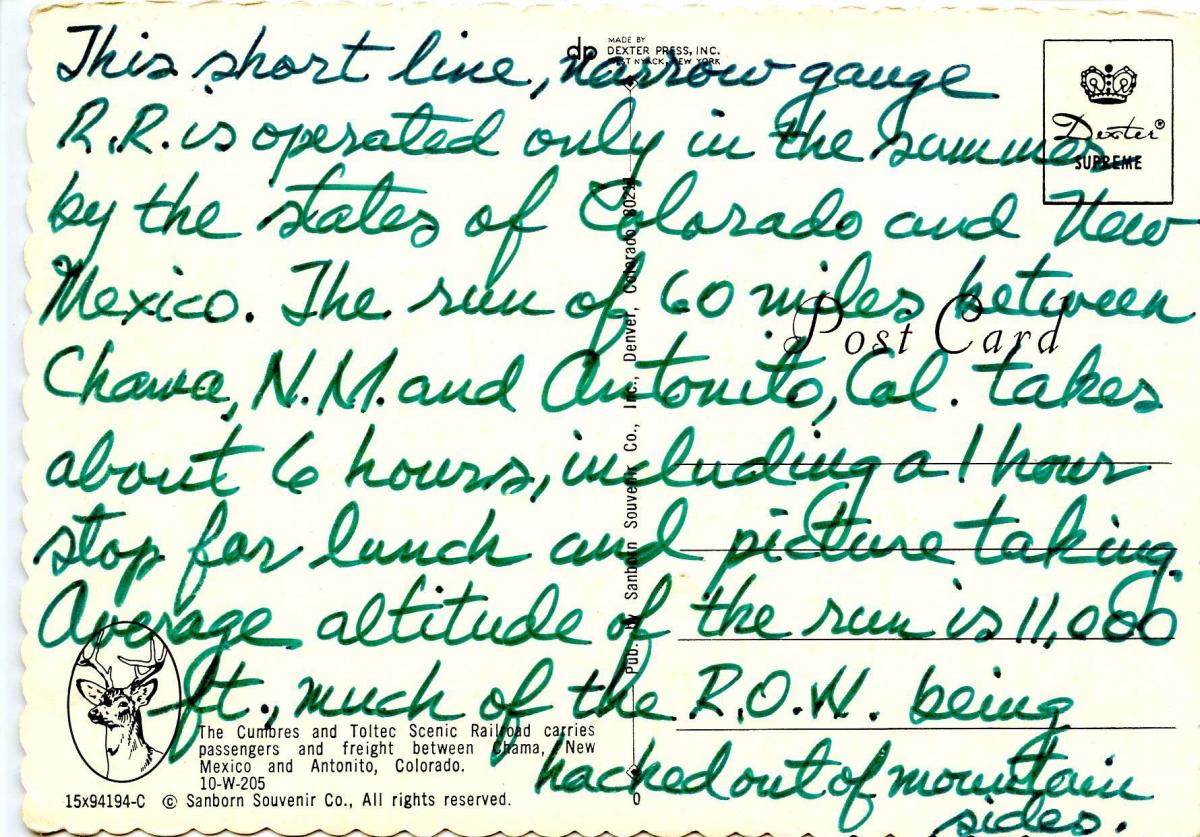 This short line, narrow gauge
R.R. is operated only in the summer
by the states of Colorado and New
Mexico. The run of 60 miles between
Chama, N.M. and Antonito, Col. takes
about 6 hours, including a 1 hour
stop for lunch and picture taking.
Average altitude of the run is 11,000
ft., much of the R.O.W. being
hacked out of mountain
sides.
dp
MADE BY
DEXTER PRESS, INC.
WEST NYACK, NEW YORK
Dexter®
SUPREME
Post Card
Pub. by Sanborn Souvenir Co., Inc., Denver, Colorado 80211
The Cumbres and Toltec Scenic Railroad carries
passengers and freight between Chama, New
Mexico and Antonito, Colorado.
10-W-205
15x94194-C © Sanborn Souvenir Co., All rights reserved.
0